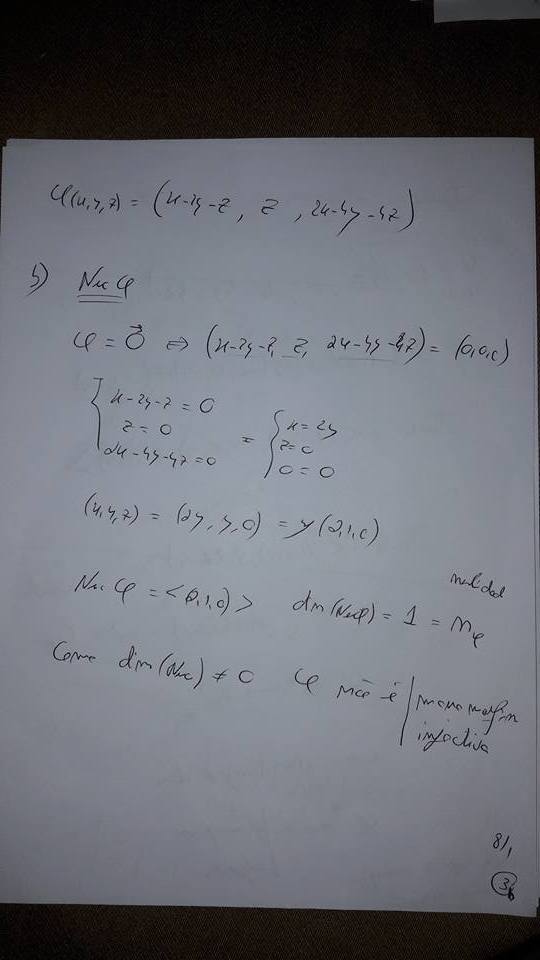 φ(x,y,z) = (x-2y-z , z , 2x-4y-4z)
b) Nuc φ
φ = 0⃗ ⇔ (x-2y-z, z, 2x-4y-4z) = (0,0,0)
{ x-2y-z = 0
z = 0
2x-4y-4z = 0
= { x = 2y
z = 0
0 = 0
(x,y,z) = (2y, y, 0) = y(2,1,0)
nulidad
Nuc φ = <(2,1,0)> dim(Nuc φ) = 1 = nφ
Como dim(Nuc) ≠ 0 φ não é | monomorfism
injectiva
8/1
3b